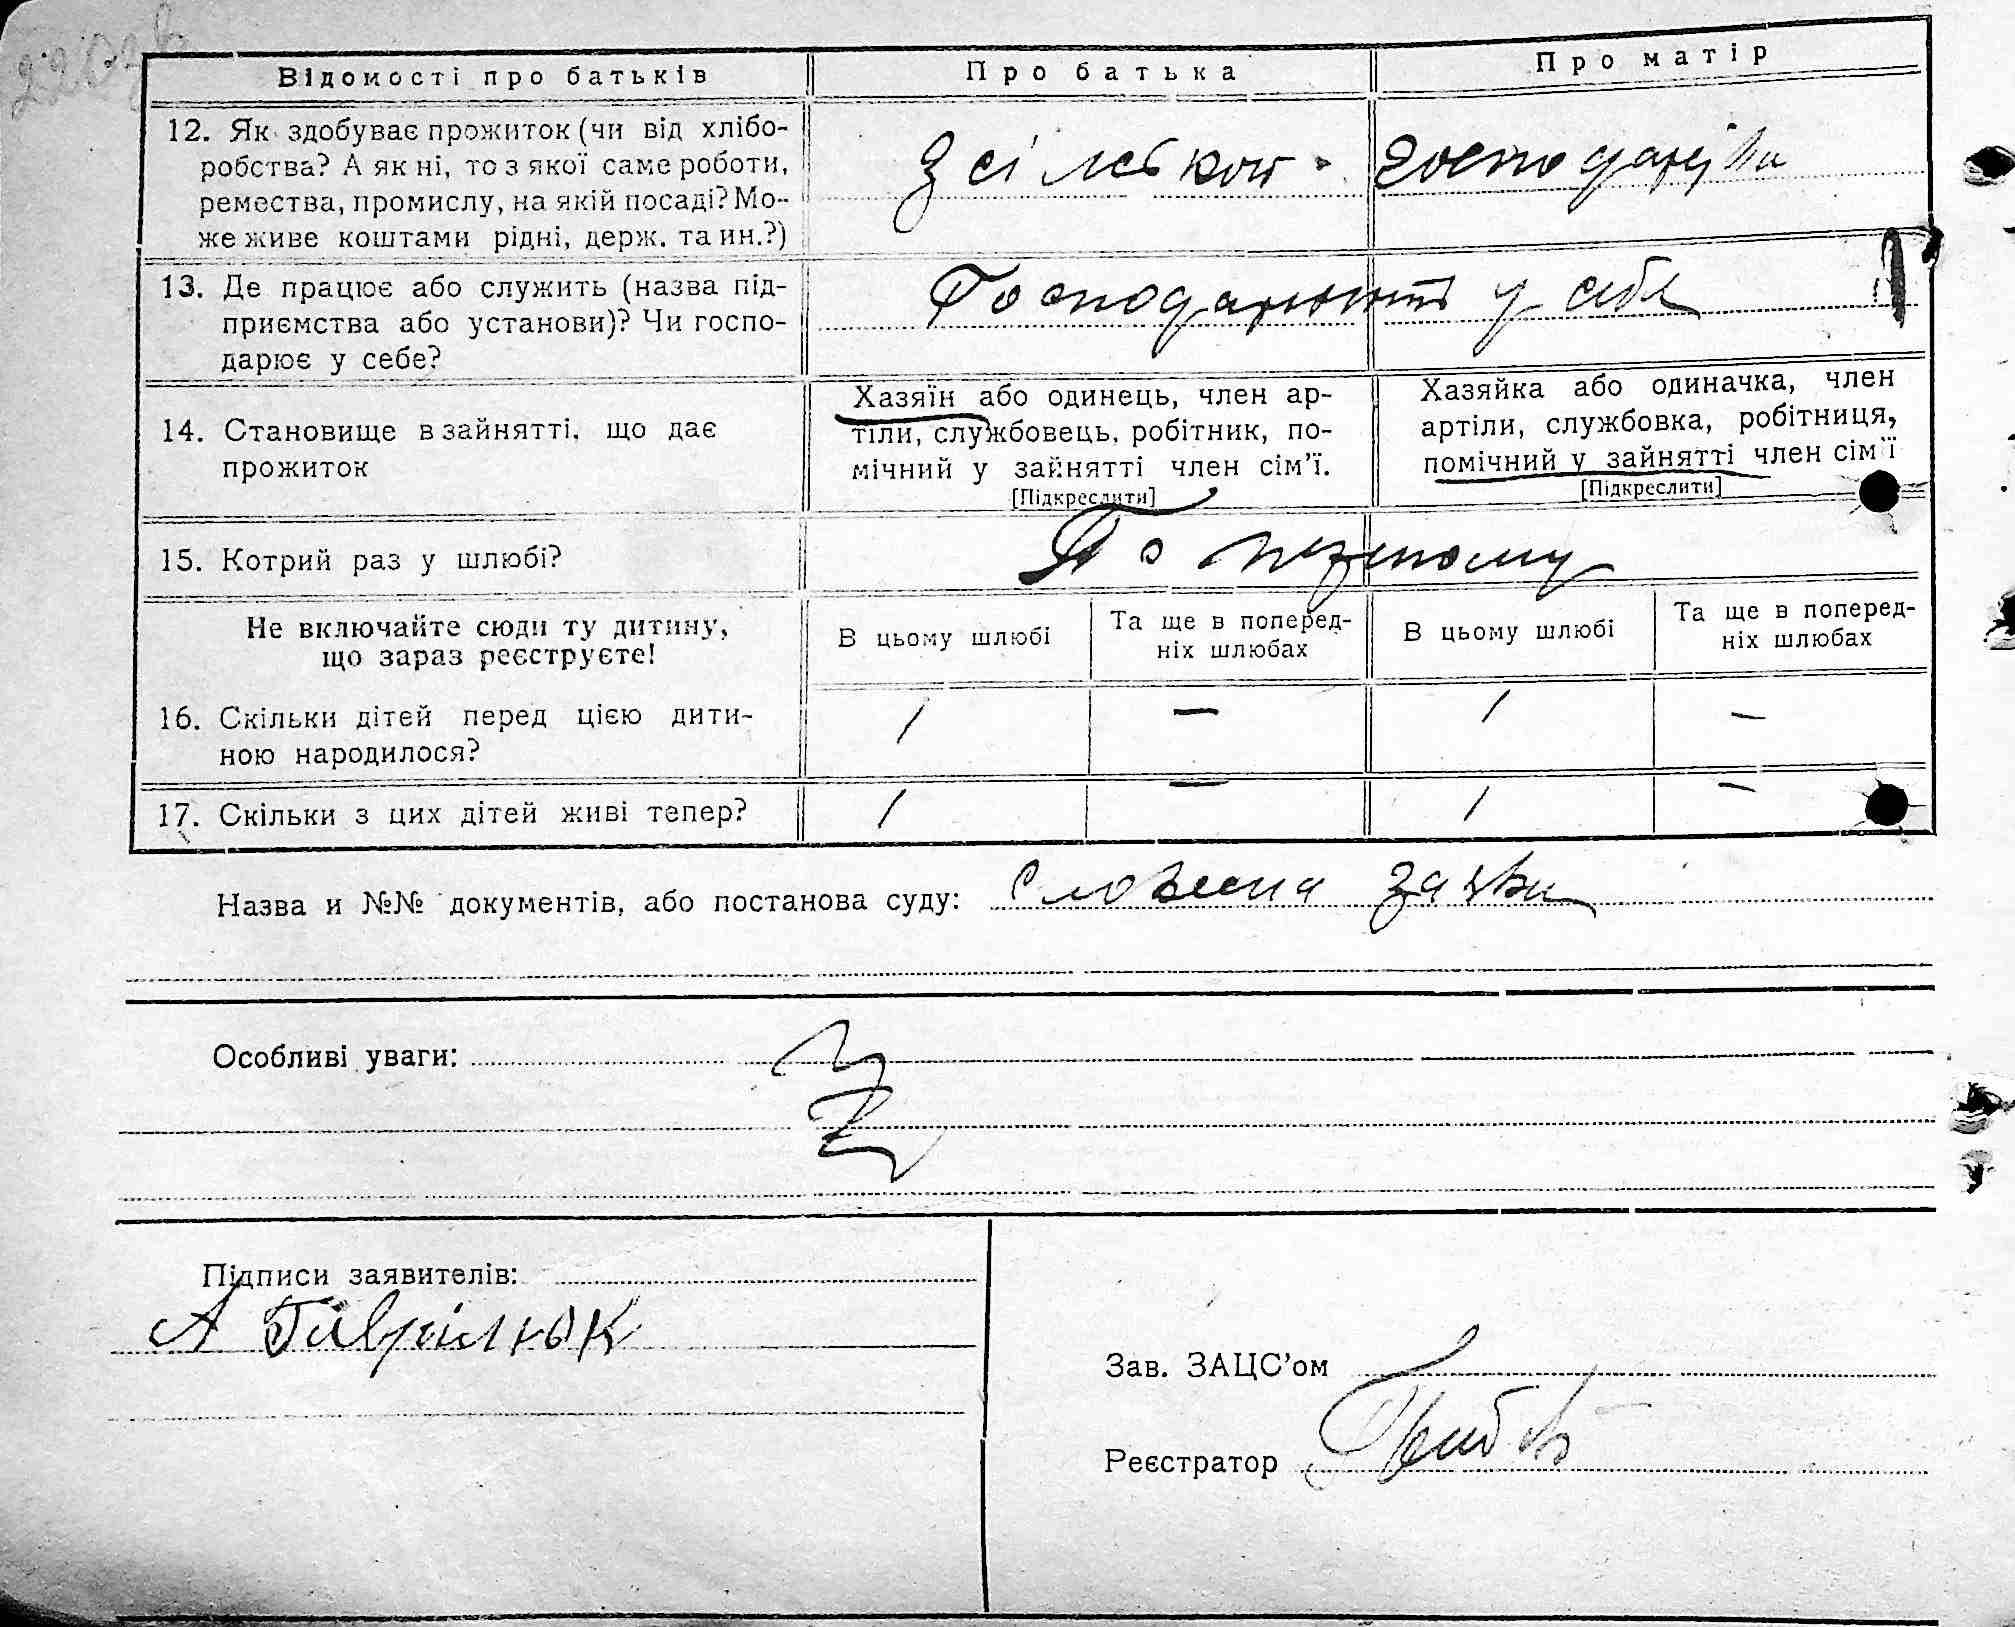 Відомості про батьків Про батька Про матір
12. Як здобуває прожиток (чи від хлібо-
робства? А як ні, то з якої саме роботи,
ремества, промислу, на якій посаді? Мо-
же живе коштами рідні, держ. та ин.?)
З сільського господарства
13. Де працює або служить (назва під-
приємства або установи)? Чи госпо-
дарює у себе?
Господарюють у себя
14. Становище в зайнятті, що дає
прожиток
Хазяїн або одинець, член ар-
тіли, службовець, робітник, по-
мічний у зайнятті член сім'ї.
[Підкреслити]
Хазяйка або одиначка, член
артіли, службовка, робітниця,
помічний у зайнятті член сім'ї
[Підкреслити]
15. Котрий раз у шлюбі? По первому
Не включайте сюди ту дитину,
що зараз реєструєте!
В цьому шлюбі
Та ще в поперед-
ніх шлюбах
В цьому шлюбі
Та ще в поперед-
ніх шлюбах
16. Скільки дітей перед цією дити-
ною народилося?
1 — 1 —
17. Скільки з цих дітей живі тепер? 1 — 1 —
Назва и №№ документів, або постанова суду: Словесна заява
Особливі уваги:
Підписи заявителів:
А Гаврилюк
Зав. ЗАЦС'ом
Реєстратор